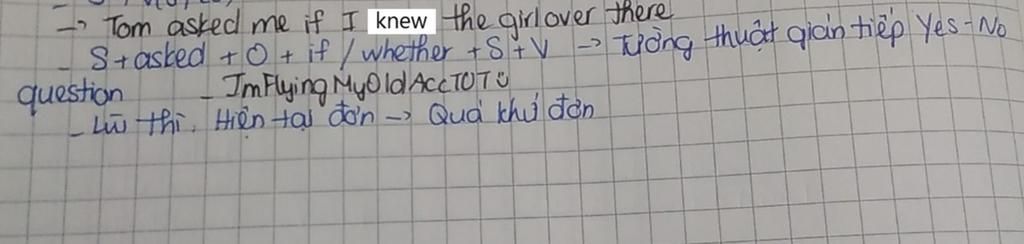 -> Tom asked me if I knew the girl over there
- S + asked + O + if / whether + S + V -> Tường thuật gián tiếp Yes-No
question - ImFlyingMyOldAccTOTU
- Lùi thì. Hiện tại đơn -> Quá khứ đơn